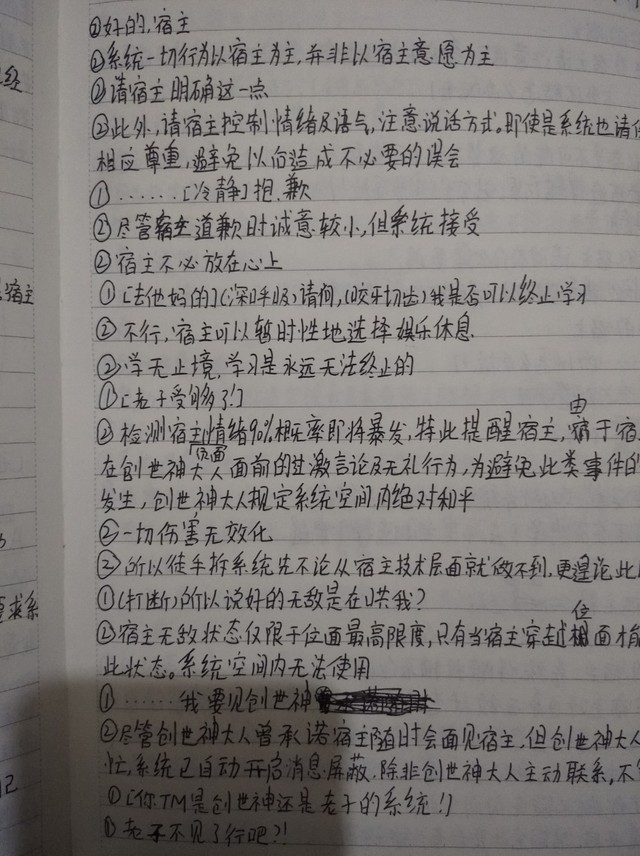 ②好的，宿主
②系统一切行为以宿主为主，并非以宿主意愿为主
②请宿主明确这一点
②此外，请宿主控制情绪及语气，注意说话方式。即使是系统也请
相应尊重，避免以后造成不必要的误会
①……[冷静]抱歉
②尽管宿主道歉时诚意较小，但系统接受
②宿主不必放在心上
①[去他妈的](深呼吸)请问，(咬牙切齿)我是否可以终止学习
②不行，宿主可以暂时性地选择娱乐休息
②学无止境，学习是永远无法终止的
①[老子受够了!]
②检测宿主负面情绪90%概率即将暴发，特此提醒宿主，由于宿
在创世神大人面前的过激言论及无礼行为，为避免此类事件的
发生，创世神大人规定系统空间内绝对和平
②一切伤害无效化
②所以徒手拆系统先不论从宿主技术层面就做不到，更遑论此
①(打断)所以说好的无敌是在哄我？
②宿主无敌状态仅限于位面最高限度，只有当宿主穿越位面才能
此状态。系统空间内无法使用
①……我要见创世神
②尽管创世神大人曾承诺宿主随时会面见宿主，但创世神大人
忙，系统已自动开启消息屏蔽，除非创世神大人主动联系，不
①[你TM是创世神还是老子的系统!]
①老子不见了行吧?!
经
宿主
要求系
己